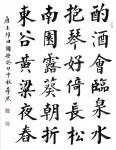 酌酒會臨泉水
抱琴好倚長松
南園露葵朝折
東谷黃粱夜舂
唐王維田園樂